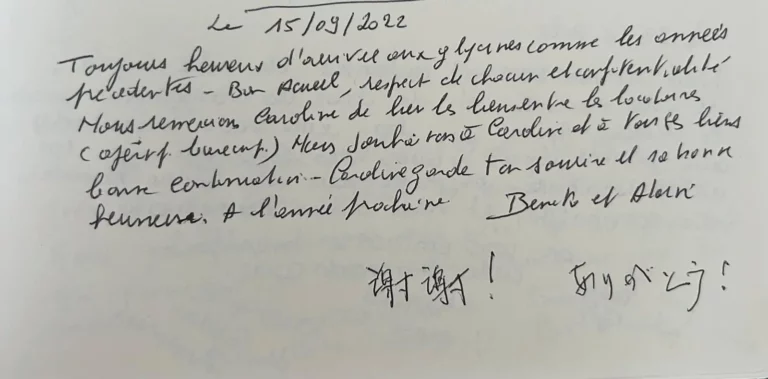 Le 15/09/2022
Toujours heureux d'arrivée aux glycines comme les années
précédentes - Bon Acueil, respect de chacun et confidentialité
Nous remercions Caroline de lier les liens entre les locataires
(apéritif barecup.) Nous à Caroline et à tous ses liens
bonne continuation - Caroline garde ton sourire et sa bonne
humeur. A l'année prochaine et Alain
谢谢! ありがとう!